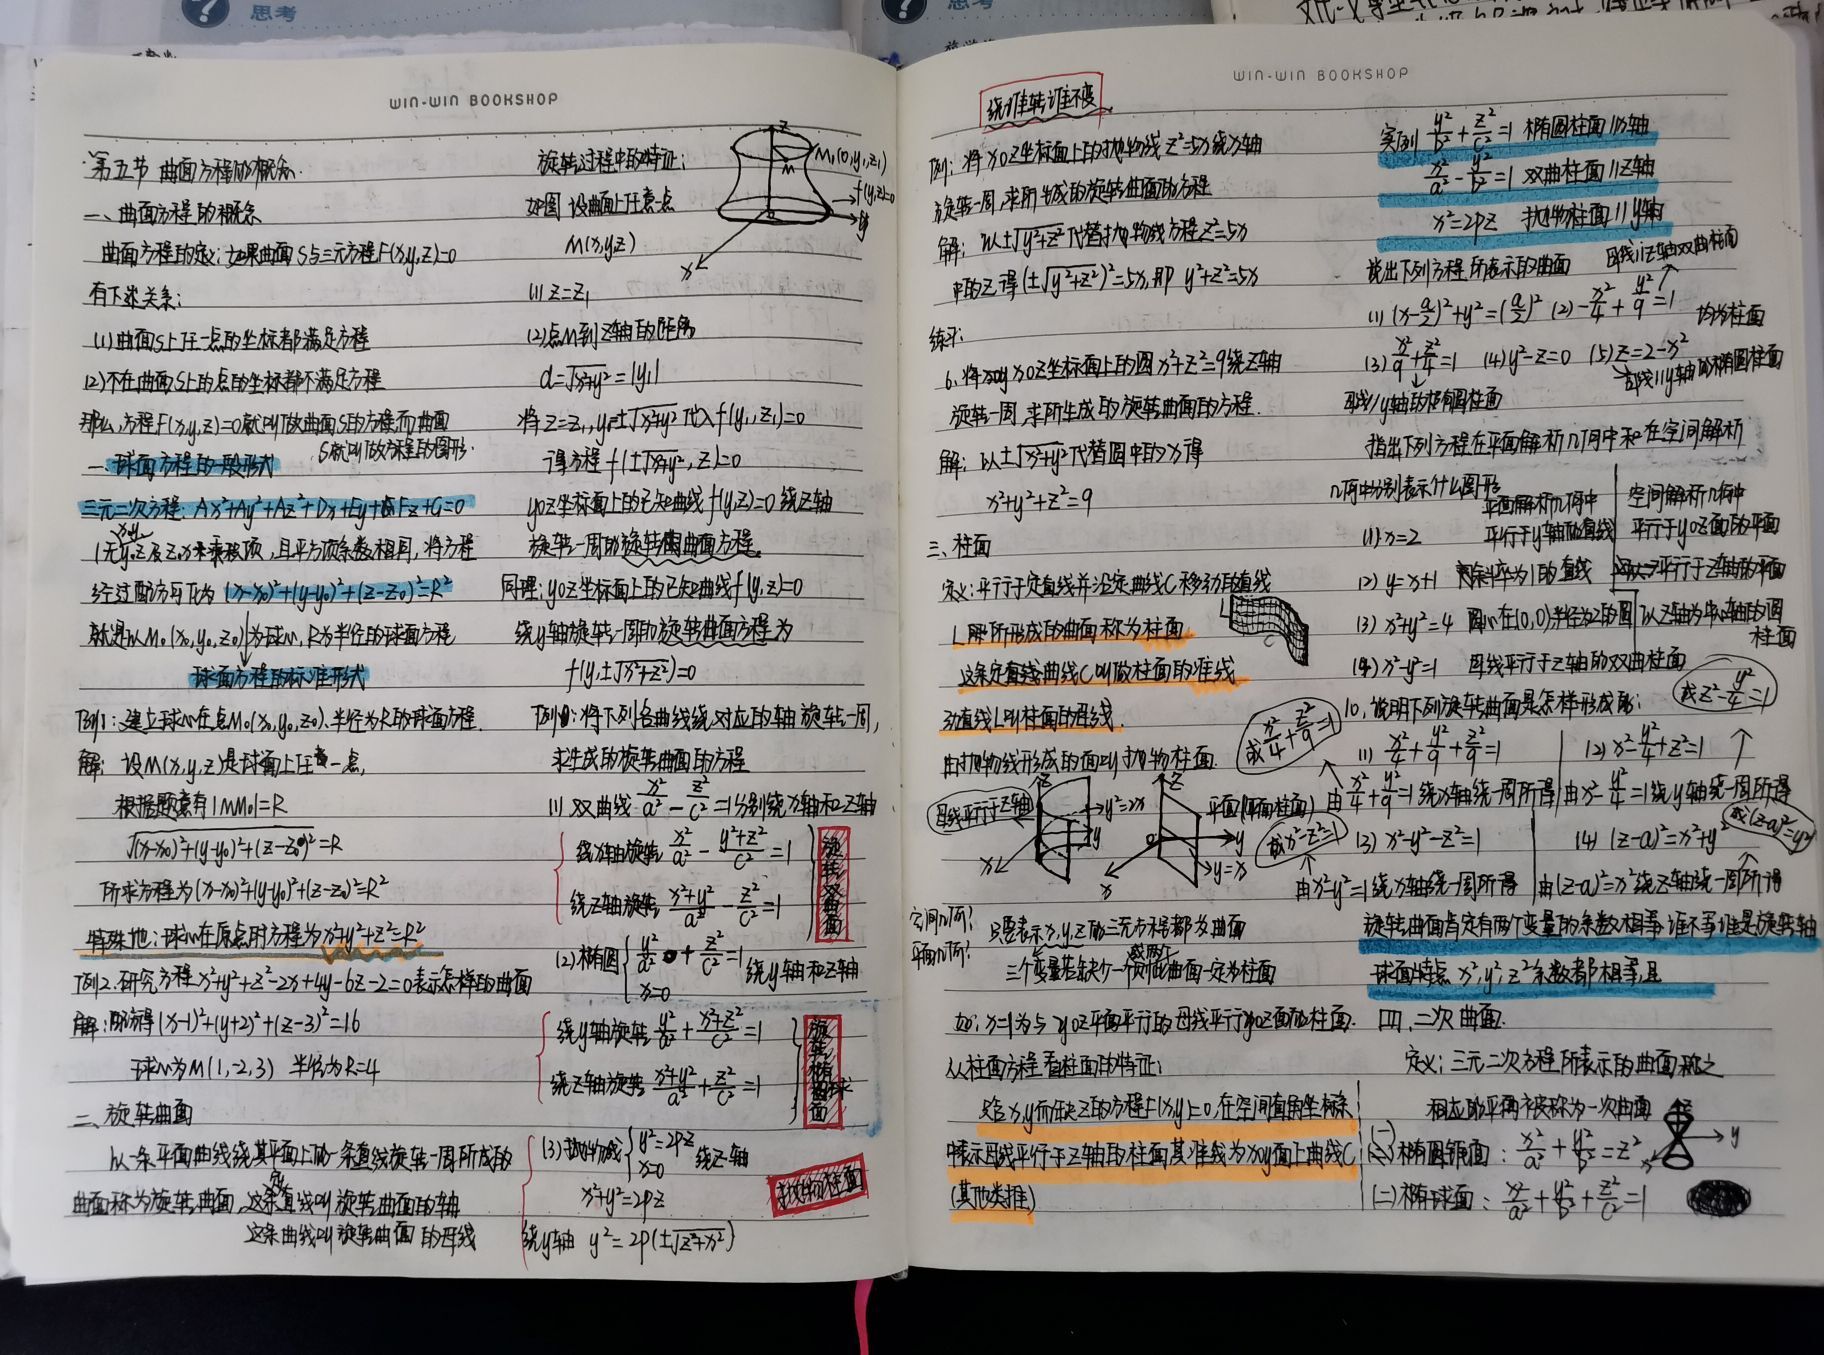 思考
思考
WIN-WIN BOOKSHOP
第五节 曲面方程的概念.
一、曲面方程的概念
曲面方程的定义:如果曲面S与三元方程F(x,y,z)=0
有下述关系:
(1)曲面S上任一点的坐标都满足方程
(2)不在曲面S上的点的坐标都不满足方程
那么,方程F(x,y,z)=0就叫做曲面S的方程,而曲面
S就叫做方程的图形.
一.球面方程的一般形式
三元二次方程: Ax²+Ay²+Az²+Dx+Ey+Fz+G=0
经过配方可化为 (x-x₀)²+(y-y₀)²+(z-z₀)²=R²
就是以M₀(x₀,y₀,z₀)为球心,R为半径的球面方程
球面方程的标准形式
例1:建立球心在点M₀(x₀,y₀,z₀).半径为R的球面方程.
解:设M(x,y,z)是球面上任一点,
根据题意有|MM₀|=R
√(x-x₀)²+(y-y₀)²+(z-z₀)²=R
所求方程为(x-x₀)²+(y-y₀)²+(z-z₀)²=R²
特殊地:球心在原点时方程为x²+y²+z²=R²
例2.研究方程x²+y²+z²-2x+4y-6z-2=0表示怎样的曲面
解:配方得(x-1)²+(y+2)²+(z-3)²=16
球心为M(1,-2,3) 半径为R=4
二、旋转曲面
以一条平面曲线绕其平面上的一条直线旋转一周所成的
曲面称为旋转曲面,这条定直线叫旋转曲面的轴
这条曲线叫旋转曲面的母线
旋转过程中的特征:
如图 设曲面上任意一点
M(x,y,z)
(1) z=z₁
(2)点M到z轴的距离
d=√x²+y²=|y₁|
将z=z₁,y₁=±√x²+y² 代入f(y₁,z₁)=0
得方程 f(±√x²+y²,z)=0
yoz坐标面上的已知曲线f(y,z)=0绕z轴
旋转一周的旋转曲面方程.
同理:yoz坐标面上的已知曲线f(y,z)=0
绕y轴旋转一周的旋转曲面方程为
f(y,±√x²+z²)=0
z
M₁(0,y₁,z₁)
M
f(y,z)=0
y
x
例:将下列各曲线绕对应的轴旋转一周,
求生成的旋转曲面的方程
(1) 双曲线 x²/a² - z²/c² =1分别绕x轴和z轴
绕x轴旋转 x²/a² - (y²+z²)/c² =1
绕z轴旋转 (x²+y²)/a² - z²/c² =1
旋转双曲面
(2)椭圆 { y²/a² + z²/c² =1 绕y轴和z轴
x=0
绕y轴旋转 y²/a² + (x²+z²)/c² =1
绕z轴旋转 (x²+y²)/a² + z²/c² =1
旋转椭球面
(3)抛物线 { y²=2pz 绕z轴
x=0
x²+y²=2pz
绕y轴 y²=2p(±√z²+x²)
WIN-WIN BOOKSHOP
绕谁转谁不变
例:将xoz坐标面上的抛物线z²=5x绕x轴
旋转一周,求所生成的旋转曲面的方程
解:以±√y²+z²代替抛物线方程z²=5x
中的z得(±√y²+z²)²=5x,即 y²+z²=5x
练习:
6.将xoz坐标面上的圆x²+z²=9绕z轴
旋转一周,求所生成的旋转曲面的方程.
解:以±√x²+y²代替圆中的x得
x²+y²+z²=9
三、柱面
定义:平行于定直线并沿定曲线C移动的直线
L所形成的曲面称为柱面
这条定曲线C叫做柱面的准线
动直线L叫柱面的母线.
由抛物线形成的面叫抛物柱面.
母线平行于z轴
z
y²=2x
y
x
z
平面(平面柱面)
y
y=x
x
空间几何?
平面几何?
只要表示x,y,z的三元方程都为曲面
三个变量若缺个一个或两个则此曲面一定为柱面
如:x=1为与yoz平面平行的母线平行yoz面的柱面.
从柱面方程看柱面的特征:
只含x,y而缺z的方程F(x,y)=0,在空间直角坐标系
中表示母线平行于z轴的柱面其准线为xoy面上曲线C
(其他类推)
实例 y²/b² + z²/c² =1 椭圆柱面//x轴
x²/a² - y²/b² =1 双曲柱面//z轴
x²=2pz 抛物柱面//y轴
说出下列方程所表示的曲面 母线//z轴双曲柱面
(1) (x-a/2)²+y²=(a/2)² (2) -x²/4 + y²/9 =1
均为柱面
(3) x²/9 + z²/4 =1 (4) y²-z=0 (5) z=2-x²
母线//y轴的椭圆柱面
母线//y轴的椭圆柱面
指出下列方程在平面解析几何中和在空间解析
几何中分别表示什么图形
平面解析几何中 空间解析几何中
(1) x=2 平行于y轴的直线 平行于yoz面的平面
(2) y=x+1 斜率为1的直线 平行于z轴的平面
(3) x²+y²=4 圆心在(0,0)半径为2的圆 以z轴为中心轴的圆柱面
(4) x²-y²=1 母线平行于z轴的双曲柱面
10.说明下列旋转曲面是怎样形成的:
(1) x²/4 + y²/9 + z²/9 =1
或x²/4+z²/9=1
由x²/4 + y²/9 =1绕x轴绕一周所得
(2) x²-y²/4+z²=1
或z²-y²/4=1
由x²-y²/4=1绕y轴绕一周所得
(3) x²-y²-z²=1
或x²-z²=1
由x²-y²=1绕x轴绕一周所得
(4) (z-a)²=x²+y²
或(z-a)²=y²
由(z-a)²=x²绕z轴绕一周所得
旋转曲面肯定有两个变量的系数相等谁不等谁是旋转轴
球面特点x²,y²,z²系数都相等,且
四、二次曲面.
定义:三元二次方程所表示的曲面称之
相应的平面被称为一次曲面
(一)椭圆锥面: x²/a² + y²/b² = z²
z
y
x
(二)椭球面: x²/a² + y²/b² + z²/c² =1